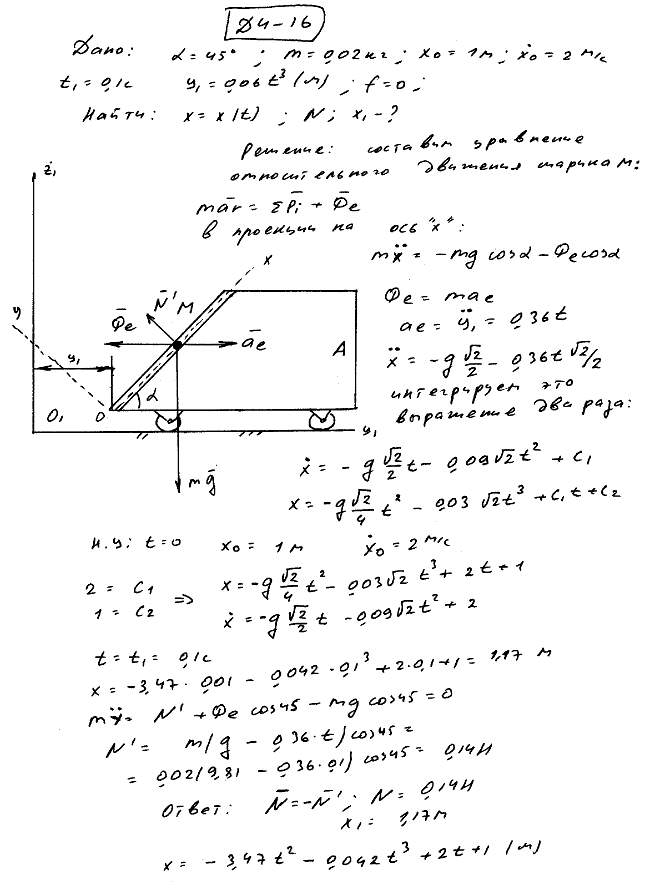 Д4-16
Дано: α = 45° ; m = 0,02 кг ; x₀ = 1 м ; ẋ₀ = 2 м/с
t₁ = 0,1с y₁ = 0,06 t³ (м) ; f = 0 ;
Найти: x = x(t) ; N ; x₁ - ?
Решение: составим уравнение
относительного движения шарика М:
mār = ΣP̄i + Φ̄e
в проекции на ось "x":
mẍ = -mg cosα - Φe cosα
Φe = mae
ae = ÿ₁ = 0,36t
ẍ = -g √2/2 - 0,36t √2/2
интегрируем это
выражение два раза:
z₁
x
y
N̄' M
Φ̄e
āe
A
y₁
α
O₁ O
y₁
mḡ
ẋ = -g √2/2 t - 0,09√2 t² + C₁
x = -g √2/4 t² - 0,03 √2 t³ + C₁t + C₂
Н.У: t = 0 x₀ = 1 м ẋ₀ = 2 м/с
2 = C₁
1 = C₂
⇒
x = -g √2/4 t² - 0,03√2 t³ + 2t + 1
ẋ = -g √2/2 t - 0,09√2 t² + 2
t = t₁ = 0,1с
x = -3,47 · 0,01 - 0,042 · 0,1³ + 2 · 0,1 + 1 = 1,17 м
mÿ = N' + Φe cos45 - mg cos45 = 0
N' = m(g - 0,36 · t) cos45 =
= 0,02(9,81 - 0,36 · 0,1) cos45 = 0,14Н
Ответ: N̄ = -N̄' ; N = 0,14Н
x₁ = 1,17м
x = -3,47 t² - 0,042 t³ + 2t + 1 (м)